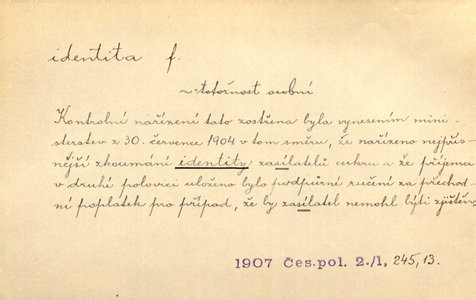 identita f.
~ totožnost osobní
Kontrolní nařízení tato zostřena byla vynesením mini-
sterstev z 30. července 1904 v tom směru, že nařízeno nejpřís-
nější zkoumání identity zasílatelů cukru a že příjemci
v druhé polovici uloženo bylo podpůrné ručení za přechod
ní poplatek pro případ, že by zasílatel nemohl býti zjištěn,
1907 čes.pol. 2./1, 245,13.